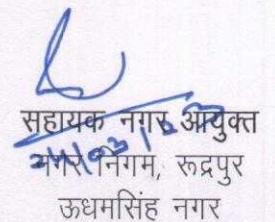 सहायक नगर आयुक्त
नगर निगम, रूद्रपुर
ऊधमसिंह नगर